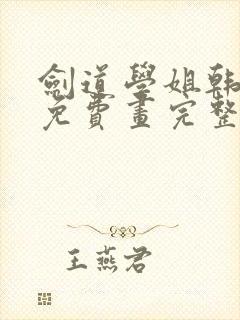 劍道學姐韩
免費畫完整
王燕君